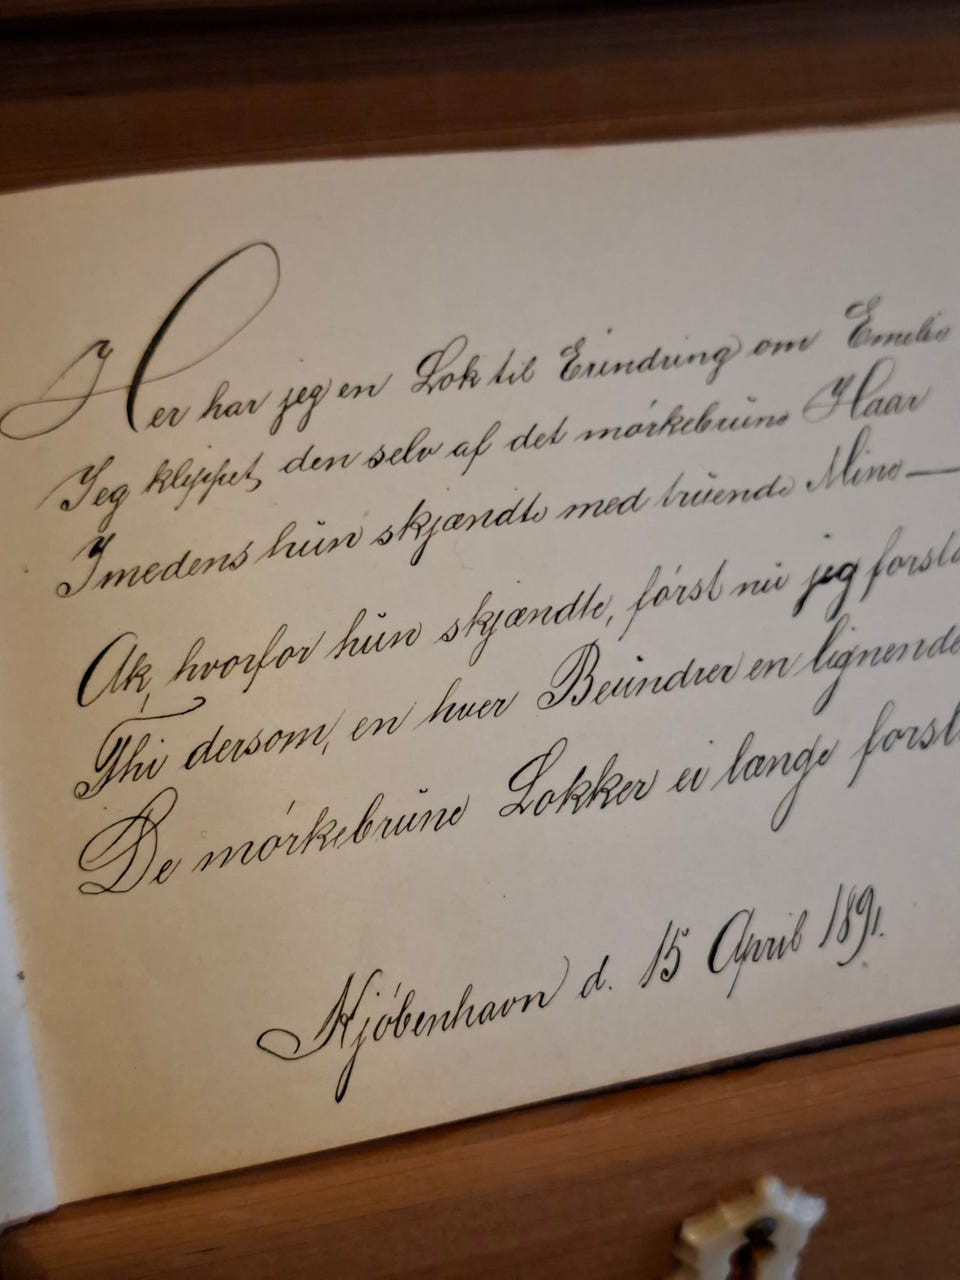 Her har jeg en Lok til Erindring om Emilie
Jeg klippet den selv af det mórkebrúne Haar
Imedens hún skjændte med trúende Mine —
Ak, hvorfor hún skjændte, fórst nú jeg forsta
Thi dersom, en hver Beúndrer en lignende
De mórkebrúne Lokker ei længe forst
Kjóbenhavn d. 15 April 1891.